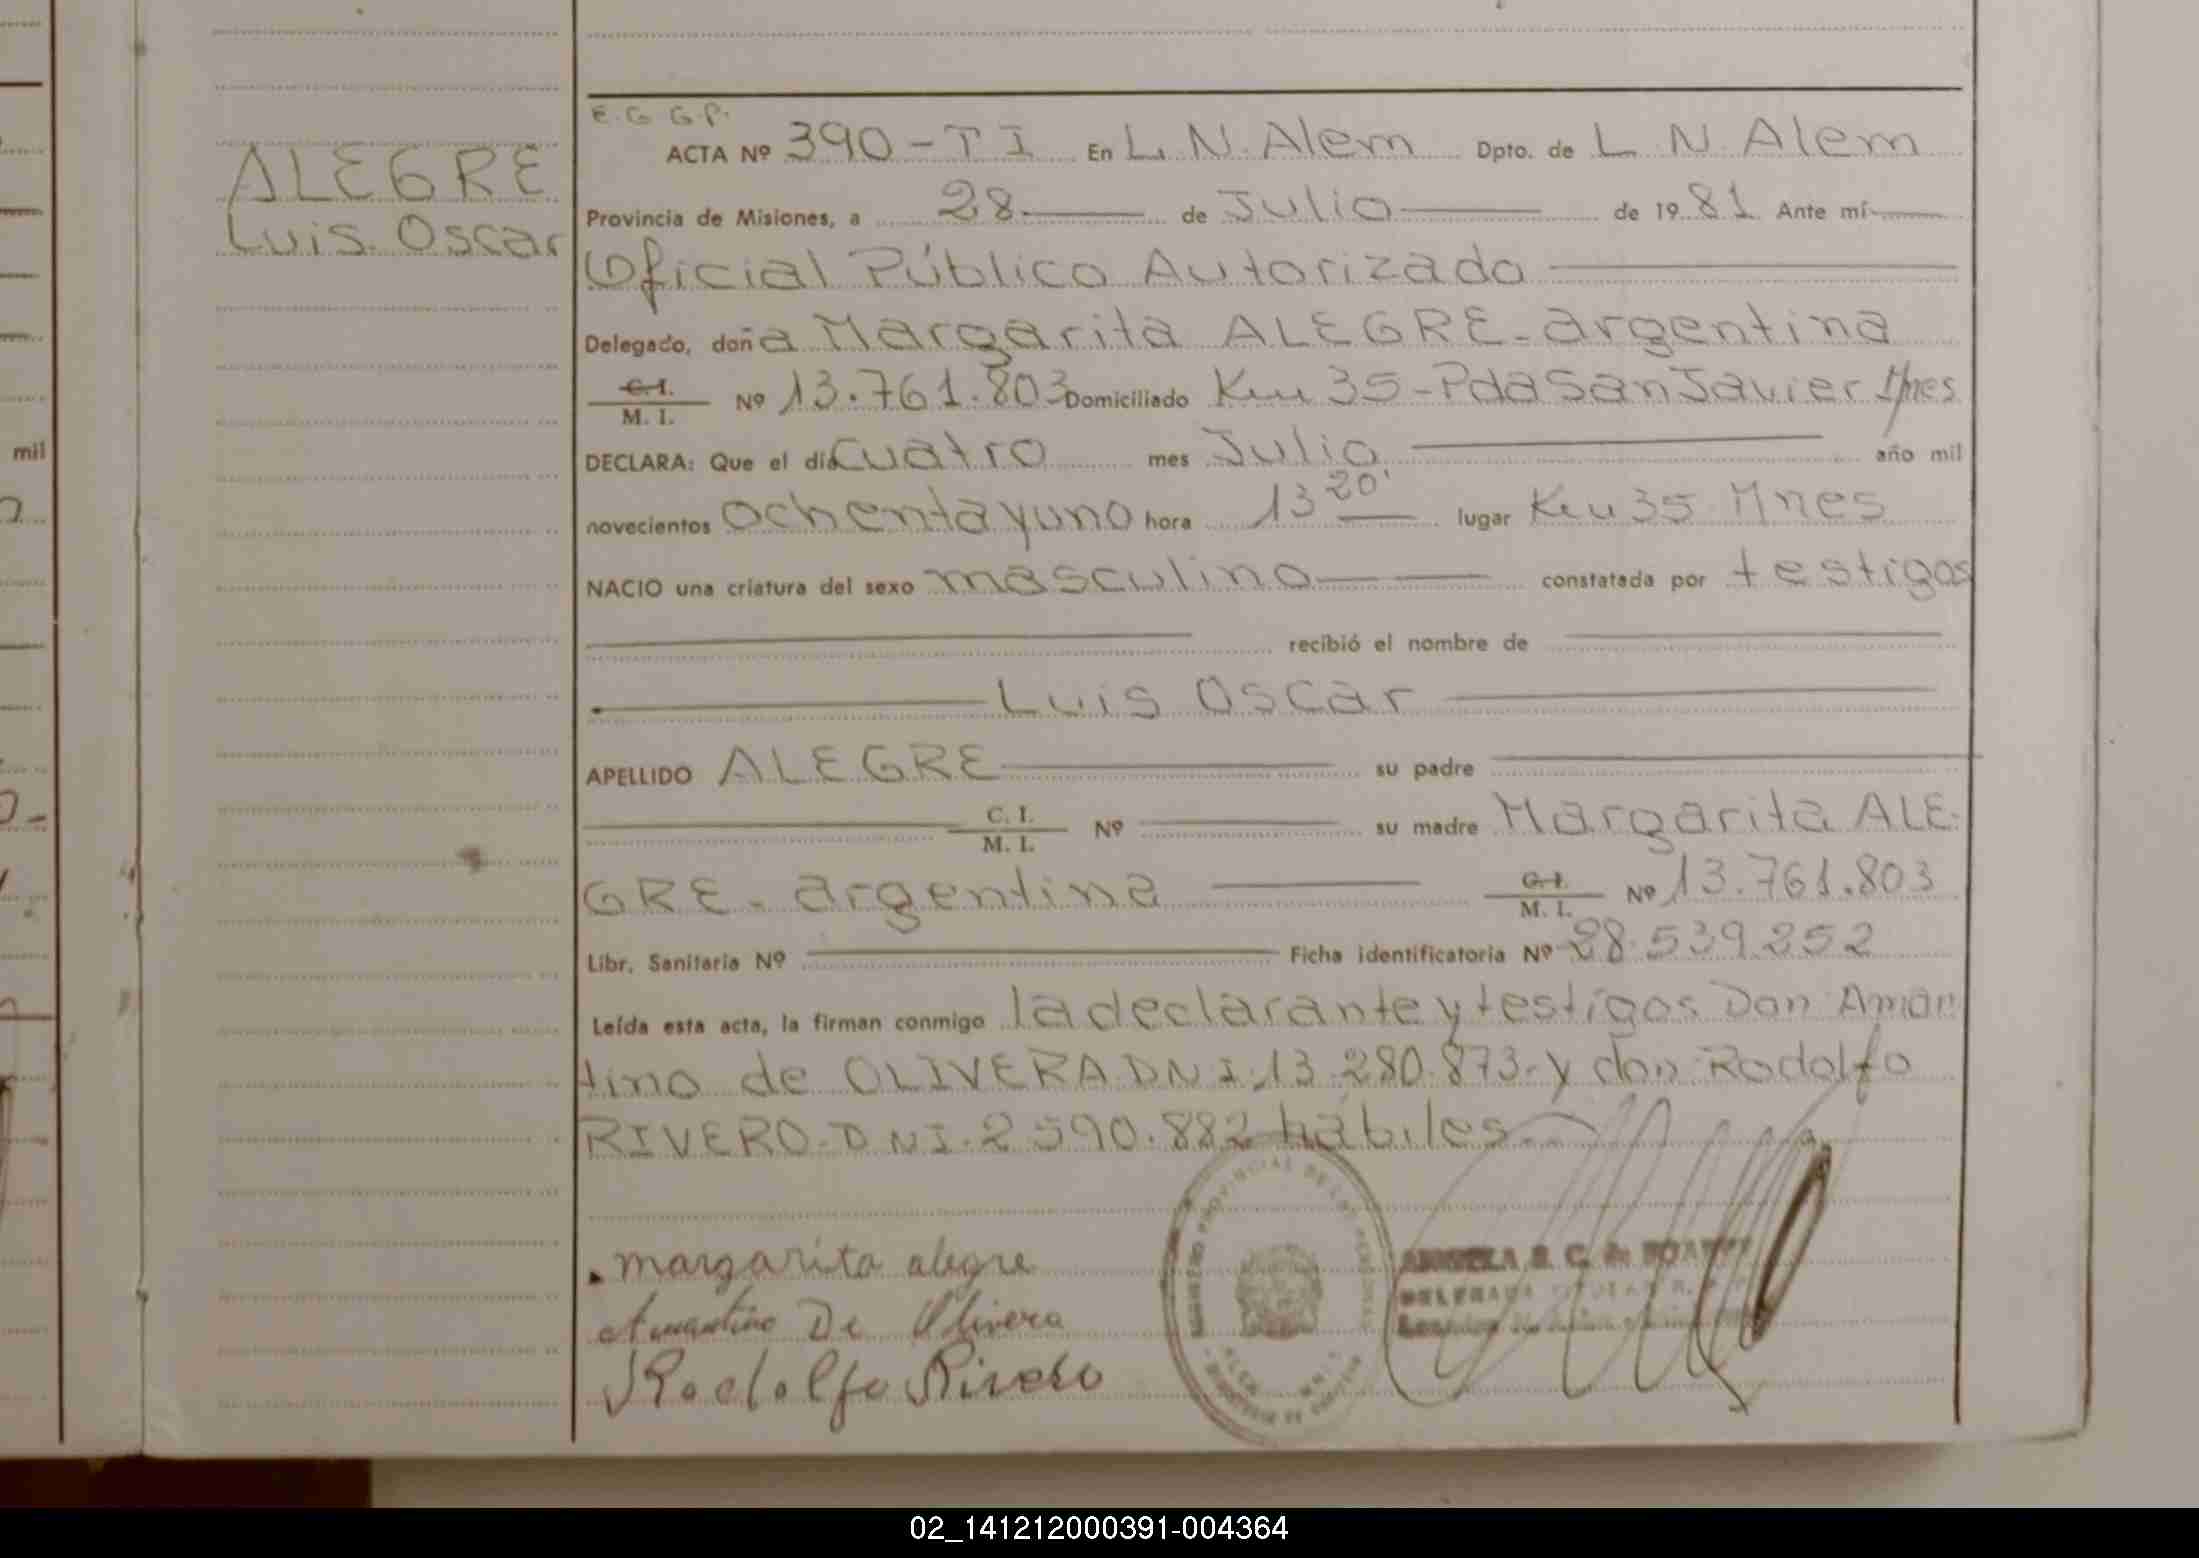 mil
ALEGRE
Luis Oscar
E.G G.P.
ACTA Nº 390-TI En L. N. Alem Dpto. de L. N. Alem
Provincia de Misiones, a 28 de Julio de 1981 Ante mí
Oficial Público Autorizado
Delegado, doña Margarita ALEGRE-argentina
C.I. M. I. Nº 13.761.803 Domiciliado Km 35-Pda San Javier Mnes
DECLARA: Que el día cuatro mes Julio año mil
novecientos ochenta y uno hora 13 20' lugar Km 35 Mnes
NACIO una criatura del sexo masculino constatada por testigos
recibió el nombre de
Luis Oscar
APELLIDO ALEGRE su padre
C. I. M. I. Nº su madre Margarita ALE-
GRE-argentina C.I. M. I. Nº 13.761.803
Libr. Sanitaria Nº Ficha identificatoria Nº 28.539.252
Leída esta acta, la firman conmigo la declarante y testigos Don Aman
tino de OLIVERA DNI.13.280.873-y don Rodolfo
RIVERO-DNI.2590.882 hábiles
margarita alegre
Amantino De Olivera
Rodolfo Rivero
02_141212000391-004364